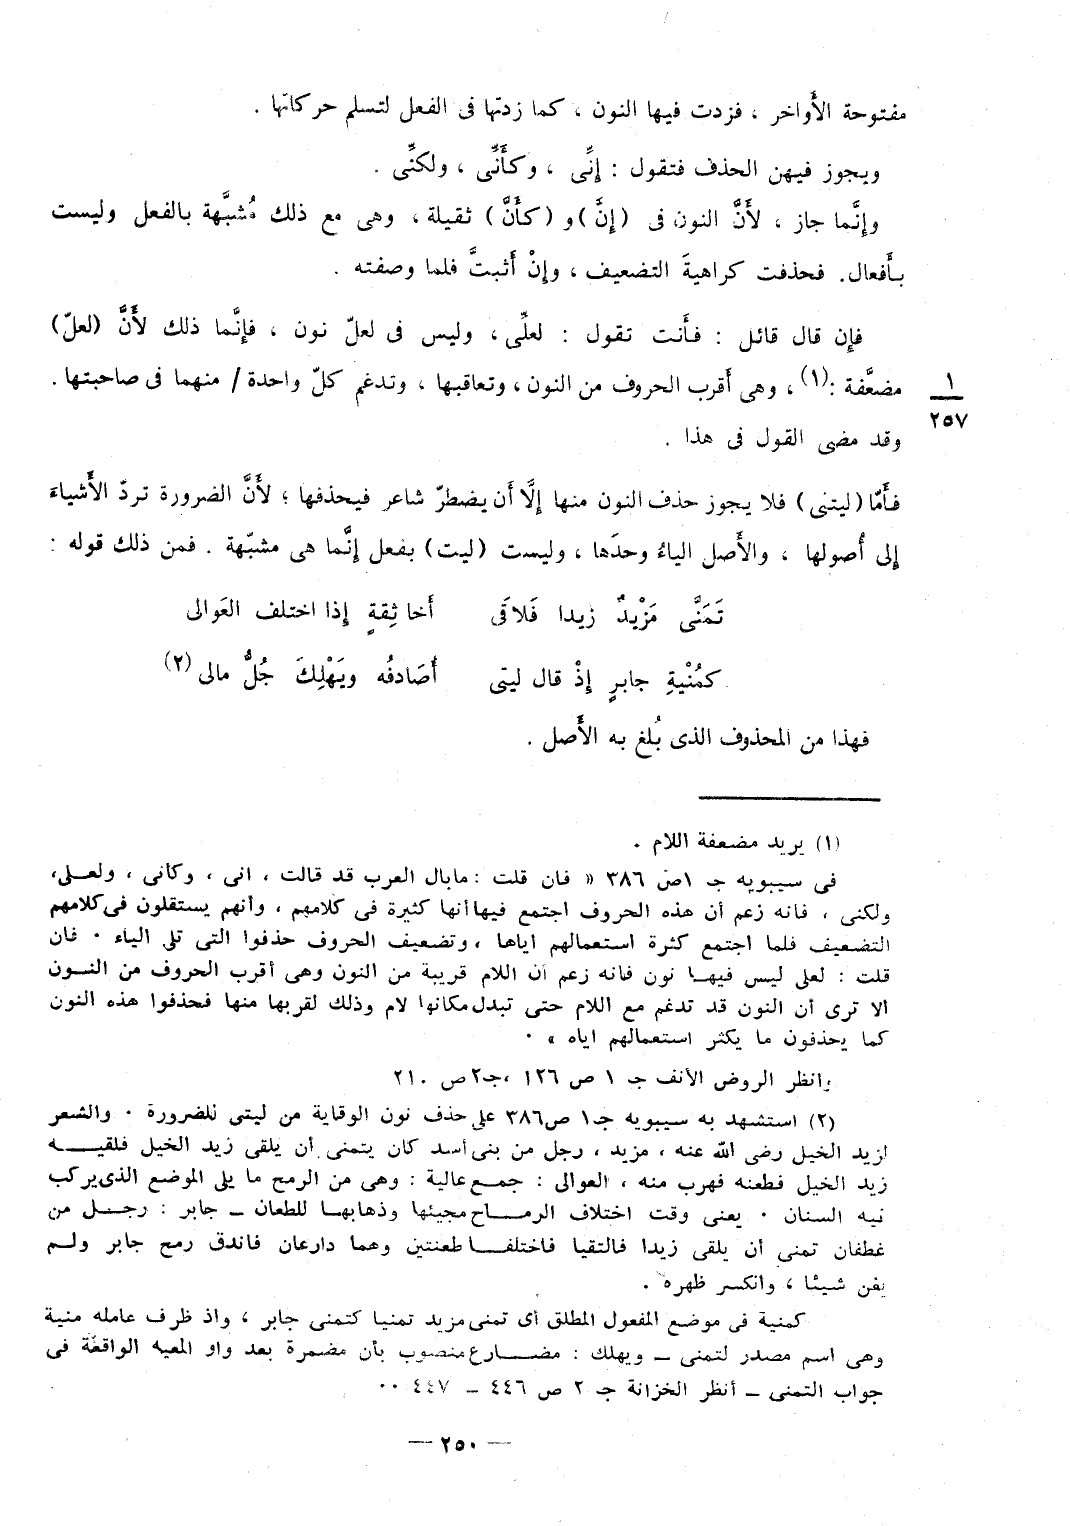 مفتوحة الأَواخر ، فزدت فيها النون ، كما زدتها فى الفعل لتسلم حركاتها .
ويجوز فيهن الحذف فتقول : إنِّى ، وكأَنِّى ، ولكنِّى .
وإنَّما جاز ، لأَنَّ النون فى (إنَّ) و (كأَنَّ) ثقيلة ، وهى مع ذلك مُشبَّهة بالفعل وليست
بأَفعال. فحذفت كراهيةَ التضعيف ، وإنْ أَثبتَّ فلما وصفته .
فإن قال قائل : فأَنت تقول : لعلِّى ، وليس فى لعلّ نون ، فإنَّما ذلك لأَنَّ (لعلّ)
مضعَّفة :(١) ، وهى أَقرب الحروف من النون ، وتعاقبها ، وتدغم كلّ واحدة / منهما فى صاحبتها .
١
٢٥٧
وقد مضى القول فى هذا .
فأَمّا (ليتنى) فلا يجوز حذف النون منها إلَّا أَن يضطرّ شاعر فيحذفها ؛ لأَنَّ الضرورة تردّ الأَشياءَ
إلى أُصولها ، والأَصل الياءُ وحدَها ، وليست (ليت) بفعل إنَّما هى مشبّهة . فمن ذلك قوله :
تَمَنَّى مَزْيدٌ زيدا فَلاقَى أَخا ثِقةٍ إذا اختلف العَوالى
كمُنْيةِ جابرٍ إذْ قال ليتى أُصَادفُه ويَهْلِكَ جُلُّ مالى (٢)
فهذا من المحذوف الذى بُلغ به الأَصل .
(١) يريد مضعفة اللام .
فى سيبويه جـ ١ص ٣٨٦ « فان قلت : مابال العرب قد قالت ، انى ، وكأنى ، ولعلى،
ولكنى ، فانه زعم أن هذه الحروف اجتمع فيها أنها كثيرة فى كلامهم ، وأنهم يستقلون فى كلامهم
التضعيف فلما اجتمع كثرة استعمالهم اياها ، وتضعيف الحروف حذفوا التى تلى الياء . فان
قلت : لعلى ليس فيها نون فانه زعم أن اللام قريبة من النون وهى أقرب الحروف من النون
ألا ترى أن النون قد تدغم مع اللام حتى تبدل مكانها لام وذلك لقربها منها فحذفوا هذه النون
كما يحذفون ما يكثر استعمالهم اياه » .
وانظر الروض الأنف جـ ١ ص ١٢٦ ،جـ٢ ص ٢١٠
(٢) استشهد به سيبويه جـ١ ص٣٨٦ على حذف نون الوقاية من ليتى للضرورة . والشعر
لزيد الخيل رضى الله عنه ، مزيد ، رجل من بنى أسد كان يتمنى أن يلقى زيد الخيل فلقيه
زيد الخيل فطعنه فهرب منه ، العوالى : جمع عالية : وهى من الرمح ما يلى الموضع الذى يركب
فيه السنان . يعنى وقت اختلاف الرماح مجيئها وذهابها للطعان – جابر : رجل من
غطفان تمنى أن يلقى زيدا فالتقيا فاختلفا طعنتين وهما دارعان فاندق رمح جابر ولم
يغن شيئا ، وانكسر ظهره .
كمنية فى موضع المفعول المطلق أى تمنى مزيد تمنيا كتمنى جابر ، واذ ظرف عامله منية
وهى اسم مصدر لتمنى – ويهلك : مضارع منصوب بأن مضمرة بعد واو المعيه الواقعة فى
جواب التمنى – أنظر الخزانة جـ ٢ ص ٤٤٦ – ٤٤٧ ..
— ٢٥٠ —